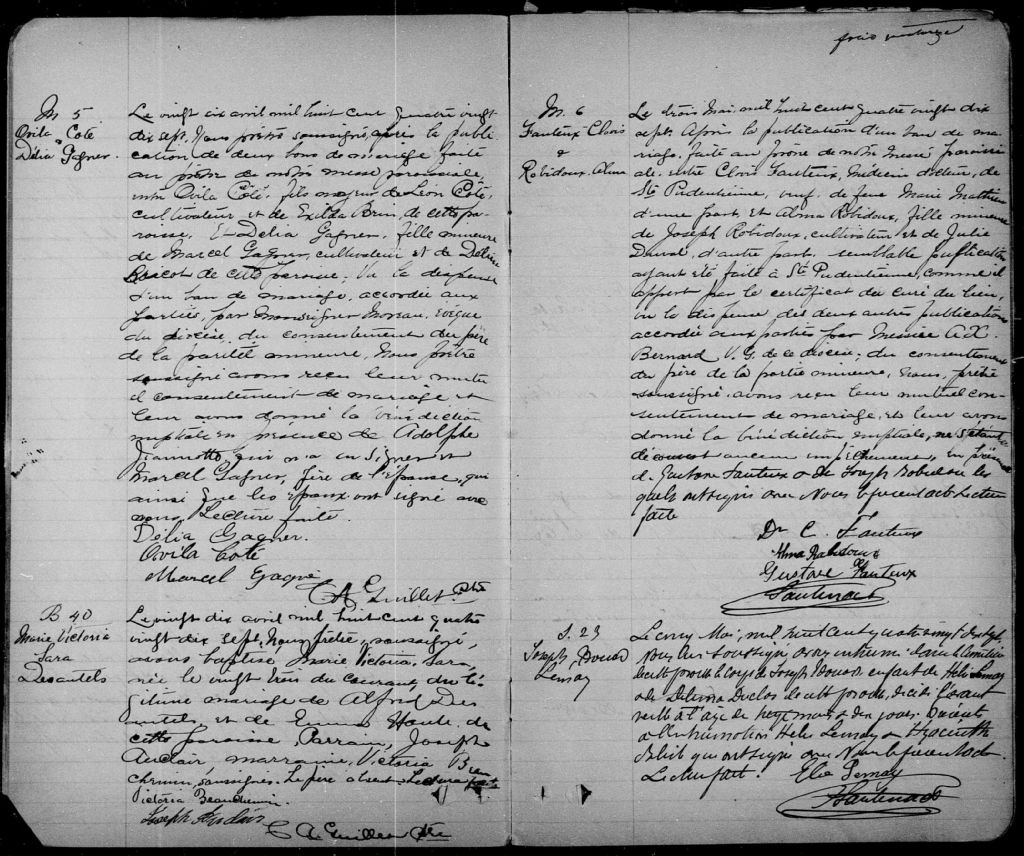 M 5
Ovila Coté
&
Délia Gagner.
Le vingt six avril mil huit cent quatre vingt
dix sept, Nous prêtre soussigné, après la publi
cation de deux bans de mariage faite
au prône de notre messe paroissiale,
entre Ovila Côté, fils majeur de Léon Coté,
cultivateur et de Exilda Brin, de cette pa
roisse, Et Délia Gagner, fille mineure
de Marcel Gagner, cultivateur et de
de cette paroisse; Vu la dispense
d'un ban de mariage, accordée aux
parties, par Monseigneur Moreau, évêque
du diocèse, du consentement du père
de la partie mineure, Nous prêtre
soussigné avons reçu leur mutuel
consentement de mariage et
leur avons donné la bénédiction
nuptiale en présence de Adolphe
Jeannotte, qui n'a su signer et
Marcel Gagner, père de l'épouse, qui
ainsi que les époux ont signé avec
nous. Lecture faite.
Délia Gagner.
Ovila Coté
Marcel Gagné
C A Guillet Ptre
B 40
Marie Victoria
Sara
Desautels
Le vingt six avril mil huit cent quatre
vingt dix sept, Nous prêtre, soussigné,
avons baptisé Marie Victoria, Sara,
née le vingt trois du courant, du lé
gitime mariage de Alfred Des
autels, et de Emma Houle, de
cette paroisse, Parrain, Joseph
Auclair, marraine, Victoria Beau
chemin, soussignés. Le père absent. Lecture faite
Victoria Beauchemin.
Joseph Auclair
C A Guillet Ptre
folio
M. 6
Fauteux Clovis
&
Robidoux Alma
Le trois Mai, mil huit cent quatre vingt dix
sept, Après la publication d'un ban de ma
riage, faite au prône de notre messe paroissi
ale, entre Clovis Fauteux, Médecin docteur, de
Ste Pudentienne, veuf de feue Marie Mathieu
d'une part, Et Alma Robidoux, fille mineure
de Joseph Robidoux, cultivateur et de Julie
Duval, d'autre part, semblable publication
ayant été faite à Ste Pudentienne, comme il
appert par le certificat du curé du lieu,
vu la dispense des deux autres publications
accordée aux parties par Messire A. X.
Bernard V. G. de ce diocèse; du consentement
du père de la partie mineure, nous, prêtre
soussigné, avons reçu leur mutuel con-
sentement de mariage, et leur avons
donné la bénédiction nuptiale, ne s'étant
découvert aucun empêchement, en présence
de Gustave Fauteux & de Joseph Robidoux les
quels ont signé avec Nous le présent acte Lecture
faite
Dr C. Fauteux
Alma Robidoux
Gustave Fauteux
S. 23
Joseph, Donat
Lemay
Le cinq Mai, mil huit cent quatre vingt dix sept
Nous Ptre soussigné avons inhumé dans le cimetière
de cette paroisse le corps de Joseph Donat, enfant de Lemay
& de Delima Duclos de cette paroisse, décédé l'avant
veille à l'age de mois & dix jours. Présents
à l'inhumation Lemay & Hyacinthe
qui ont signé avec Nous le présent acte
Lecture faite.
Elie Lemay